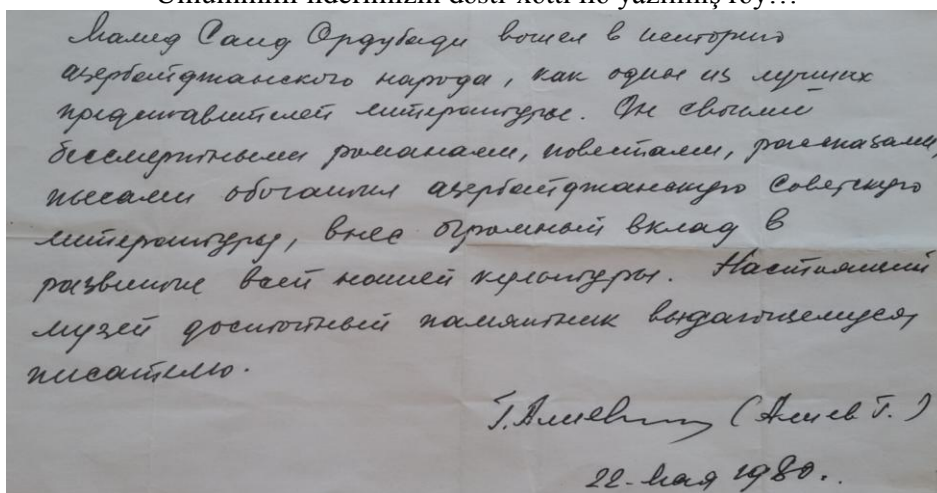 Ümummilli liderimizin dəsti-xətti ilə yazılmış rəy…
Мамед Саид Ордубади вошел в историю
азербайджанского народа, как один из лучших
представителей литературы. Он своими
бессмертными романами, повестями, рассказами,
пьесами обогатил азербайджанскую Советскую
литературу, внес огромный вклад в
развитие всей нашей культуры. Настоящий
музей достойный памятник выдающемуся
писателю.
Г. Алиев (Алиев Г.)
22 мая 1980.